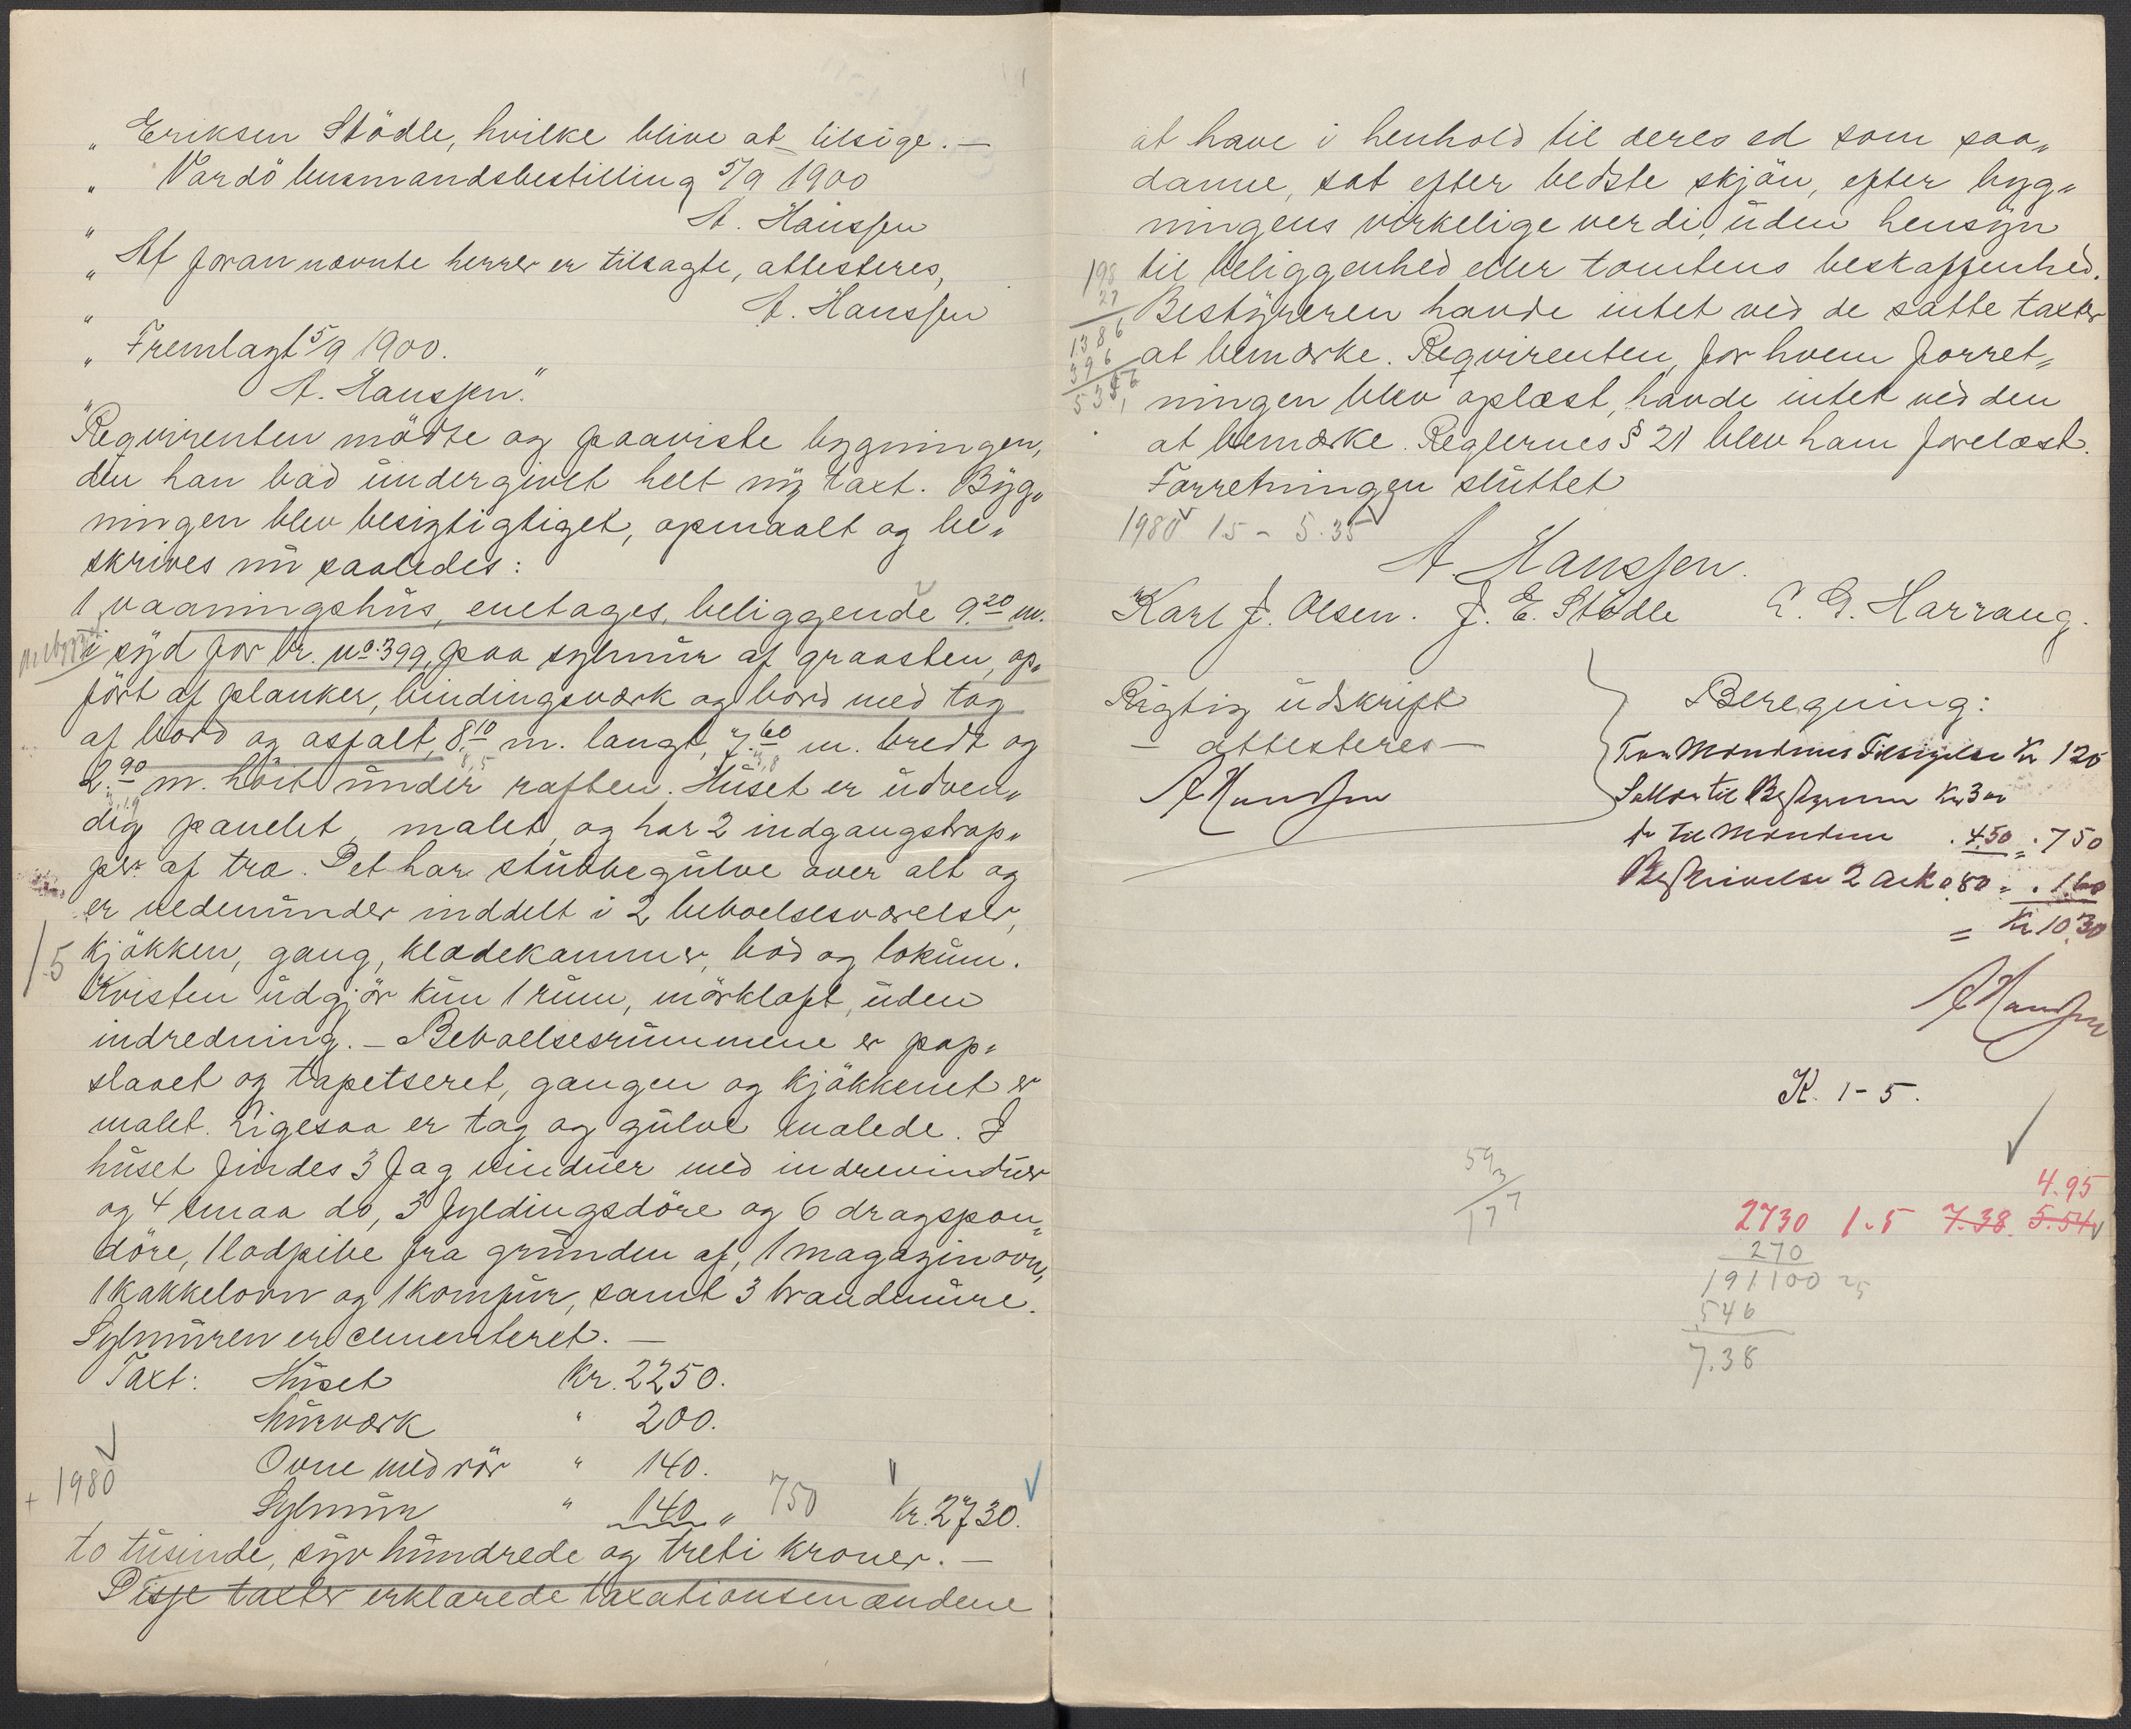 „ Eriksen Stödle, hvilke blive at tilsige. —
„ Vardö lensmandsbestilling 5/9 1900
„ A. Hanssen
„ At foran nævnte herrer er tilsagte, attesteres,
„ A. Hanssen
„ Fremlagt 5/9 1900.
„ A. Hanssen."
Reqvirenten mödte og paaviste bygningen,
den han bad undergivet helt ny taxt. Byg„
ningen blev besigtigtiget, opmaalt og be„
skrives nu saaledes:
1 vaaningshus, enetages, beliggende 9.20 m.
i syd for br. no. 399, paa sylmur af graasten, op„
fört af planker, bindingsværk og bord med tag
af bord og asfalt, 8.10 m. langt, 7.60 m. bredt og
8,5 3,8
2.90 m. höit under raften. Huset er udven„
3,19
dig panelet, malet, og har 2 indgangstrap„
per af træ. Det har stubbegulve over alt og
er nedenunder inddelt i 2 beboelsesværelser,
1.5 kjökken, gang, klædekammer, bod og lokum.
Kvisten udgjör kun 1 rum, mörkloft, uden
indredning. — Beboelsesrummene er pap„
slaaet og tapetseret, gangen og kjökkenet er
malet. Ligesaa er tag og gulve malede. I
huset findes 3 fag vinduer med indrevinduer
og 4 smaa do, 3 fyldingsdöre og 6 dragspon„
döre, 1 lodpibe fra grunden af, 1 magazinovn,
1 kakkelovn og 1 komfur, samt 3 brandmure.
Sylmuren er cementeret. —
Taxt: Huset Kr. 2250.
Murværk " 200.
Ovne med rör " 140.
+ 1980
Sylmur " 140 „ 750 Kr. 2730.
to tusinde, syv hundrede og treti kroner. —
Disse taxter erklærede taxationsmændene
at have i henhold til deres ed som saa„
danne, sat efter bedste skjön, efter byg„
ningens virkelige verdi, uden hensyn
til beliggenhed eller tomtens beskaffenhed.
198
27
1386
396
5346
Bestyreren havde intet ved de satte taxter
at bemærke. Reqvirenten, for hvem forret„
ningen blev oplæst, havde intet ved den
at bemærke. Reglernes § 21 blev ham forelæst.
Forretningen sluttet
1980 15 - 5.35
A. Hanssen.
Karl J. Olsen. J. E. Stödle E. G. Harrang.
Rigtig udskrift
— attesteres —
A Hanssen
Beregning:
For Mændenes Tilsigelse Kr 1 20
Sallær til Bestyreren Kr 3 00
do til Mændene . 4.50 = . 7 50
Beskrivelse 2 Ark a 80 = . 1.60
= Kr 10.30
A Hanssen
K. 1-5.
59
3
177
4.95
2730 1.5 7.38 5.54
270
191100 25
546
7.38